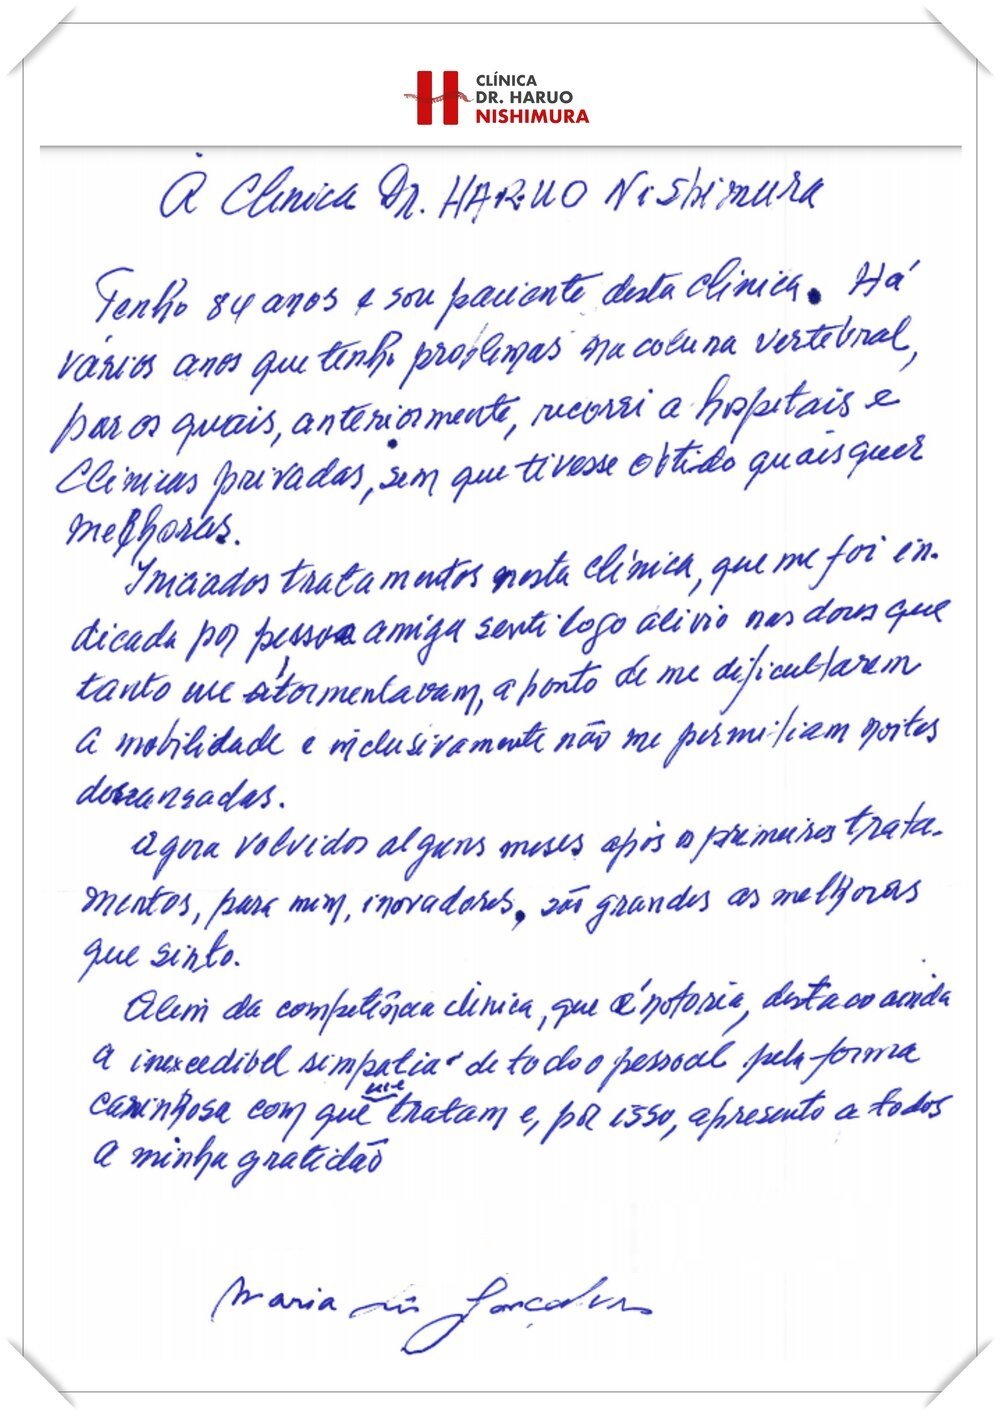 CLÍNICA
DR. HARUO
NISHIMURA
À Clinica Dr. HARUO NiShimura
Tenho 84 anos e sou paciente desta clinica. Há
vários anos que tenho problemas na coluna vertebral,
por os quais, anteriormente, recorri a hospitais e
Clinicas privadas, sem que tivesse obtido quaisquer
melhoras.
Iniciados tratamentos nesta clínica, que me foi in-
dicada por pessoa amiga senti logo alivio nas dores que
tanto me atormentavam, a ponto de me dificultarem
a mobilidade e inclusivamente não me permitiam noites
descansadas.
Agora volvidos alguns meses após os primeiros trata-
mentos, para mim, inovadores, são grandes as melhoras
que sinto.
Alem da competência clinica, que é notoria, destaco ainda
a inexcedivel simpatia de todo o pessoal pela forma
carinhosa com que me tratam e, por isso, apresento a todos
a minha gratidão
Maria Gonçalves